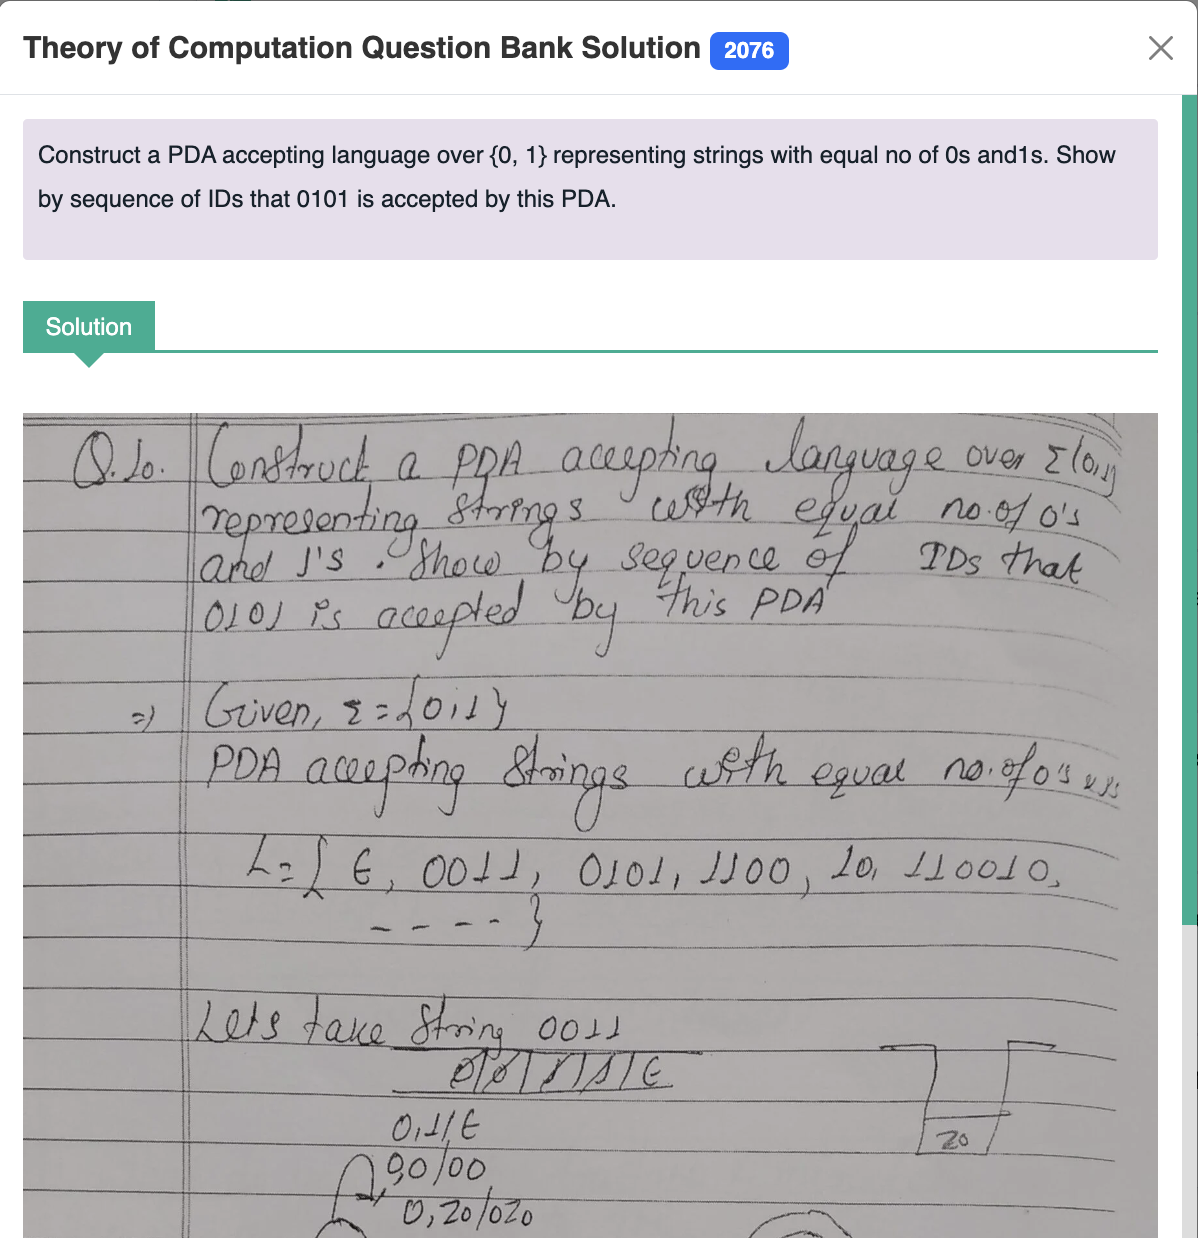 Theory of Computation Question Bank Solution 2076
Construct a PDA accepting language over {0, 1} representing strings with equal no of 0s and1s. Show
by sequence of IDs that 0101 is accepted by this PDA.
Solution
Q.10. Construct a PDA accepting language over Σ{0,1}
representing strings with equal no. of 0's
and 1's. Show by sequence of IDs that
0101 is accepted by this PDA
=) Given, Σ={0,1}
PDA accepting strings with equal no. of 0's
L={ ϵ, 0011, 0101, 1100, 10, 110010,
---- }
Lets take string 0011
0/0/1/1/ϵ
0,1/ϵ
z0
0,z0/0z0